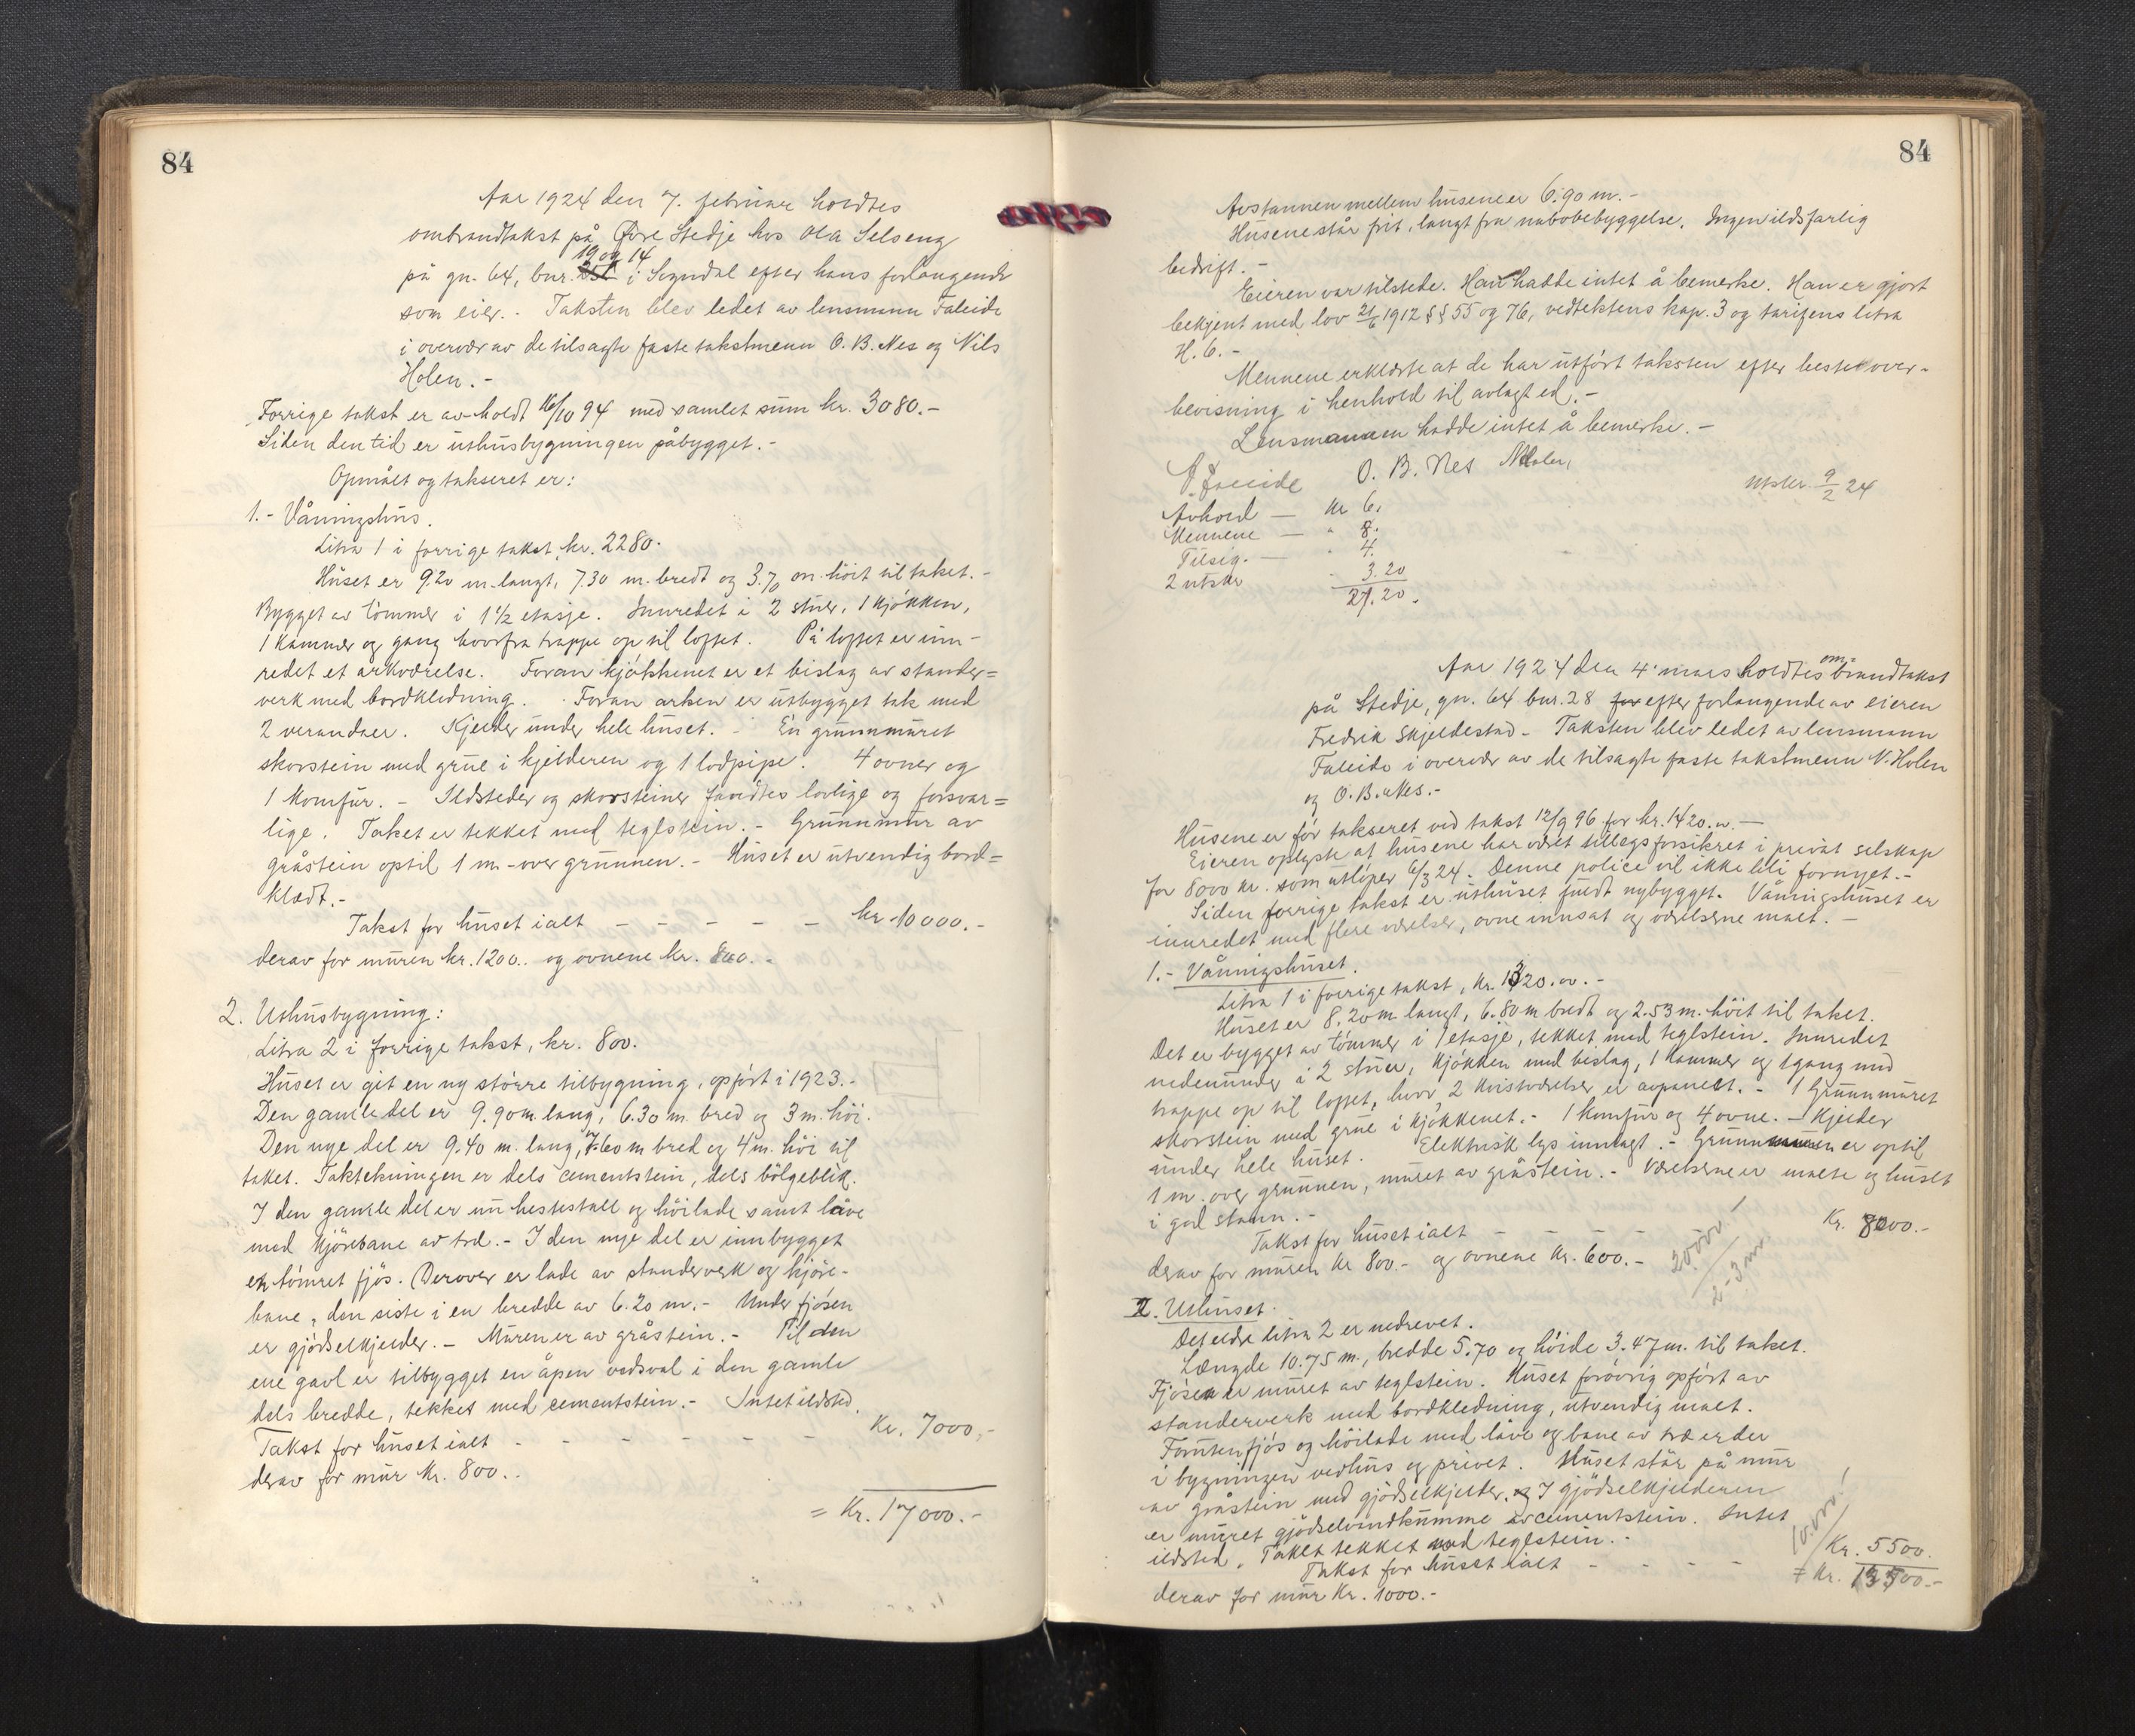 84
Aar 1924 den 7. februar holdtes
ombrandtakst på Øvre Stedje hos Ola Selseng
19 og 14
på gn. 64, bnr. i Sogndal efter hans forlangende
som eier. - Taksten blev ledet av lensmann Faleide
i overvær av de tilsagte faste takstmenn O. B. Nes og Nils
Holen. -
Forrige takst er avholdt 16/10 94 med samlet sum kr. 3080. -
Siden den tid er uthusbygningen påbygget. -
Opmålt og taksert er:
1. - Våningshus.
Litra 1 i forrige takst, kr. 2280.
Huset er 9.20 m. langt, 7.30 m. bredt og 3.70 m. höit til taket. -
Bygget av tömmer i 1 1/2 etasje. Innredet i 2 stuer, 1 kjökken,
1 kammer og gang hvorfra trappe op til loftet. På loftet er inn-
redet et arkværelse. Foran kjökkenet er et bislag av stander=
verk med bordkledning. Foran arken er utbygget tak med
2 verandaer. Kjelder under hele huset. - En grunnmuret
skorstein med grue i kjelderen og 1 lodpipe. 4 ovner og
1 komfur. - Ildsteder og skorsteiner fandtes lovlige og forsvar=
lige. Taket er tekket med teglstein. - Grunnmur av
gråstein optil 1 m. over grunnen. - Huset er utvendig bord=
klædt. -
Takst for huset ialt - - - - - kr. 10000. -
derav for muren kr. 1200. og ovnene kr. 800. -
2. Uthusbygning:
Litra 2 i forrige takst, kr. 800.
Huset er git en ny större tilbygning, opfört i 1923. -
Den gamle del er 9.90 m. lang, 6.30 m. bred og 3 m. höi.
Den nye del er 9.40 m. lang, 7.60 m bred og 4 m. höi til
taket. Taktekningen er dels cementstein, dels bölgeblik.
I den gamle del er nu hestestall og höilade samt låve
med kjörebane av træ. - I den nye del er innbygget
en tömret fjös. Derover er lade av standerverk og kjöre-
bane, den siste i en bredde av 6.20 m. - Under fjösen
er gjödselkjelder. - Muren er av gråstein. - Til den
ene gavl er tilbygget en åpen vedsval i den gamle
dels bredde, tekket med cementstein. - Intet ildsted.
Takst for huset ialt - - - - - - Kr. 7000.-
derav for mur kr. 800. -
= Kr. 17000. -
84
Avstannen mellem husene er 6.90 m. -
Husene står frit, langt fra nabobebyggelse. Ingen ildsfarlig
bedrift. -
Eieren var tilstede. Han hadde intet å bemerke. Han er gjort
bekjent med lov 21/6 1912 §§ 55 og 76, vedtektens kap. 3 og tarifens litra
H. 6. -
Mennene erklærte at de har utfört taksten efter beste over-
bevisning i henhold til avlagt ed. -
Lensmannen hadde intet å bemerke. -
Faleide O. B. Nes NHolen
Utskr. 9/2 24
Avhold — Kr 6.
Mennene — " 8.
Tilsig. — " 4.
2 utskr " 3.20
21.20.
Aar 1924 den 4. mars holdtes om-brandtakst
på Stedje, gn. 64 bnr. 28 efter forlangende av eieren
Fredrik Skjeldestad - Taksten blev ledet av lensmann
Faleide i overvær av de tilsagte faste takstmenn N. Holen
og O. B. Nes. -
Husene er för taksert ved takst 12/9 96 for kr. 1420.00. -
Eieren oplyste at husene har været tillægsforsikret i privat selskap
for 8000 kr. som utlöper 6/3 24. Denne police vil ikke bli fornyet. -
Siden forrige takst er uthuset fuldt nybygget. Våningshuset er
innredet med flere værelser, ovne innsat og værelserne malt. -
1. - Våningshuset.
Litra 1 i forrige takst, kr. 1320.00. -
Huset er 8.20 m langt, 6.80 m bredt og 2.53 m. höit til taket.
Det er bygget av tömmer i 1 etasje, tekket med teglstein. Innredet
nedenunder i 2 stuer, kjökken med bislag, 1 kammer og 1 gang med
trappe op til loftet, hvor 2 kvistværelser er avpanelt. - 1 Grunnmuret
skorstein med grue i kjökkenet. - 1 komfur og 4 ovne. - Kjelder
under hele huset. Elektrisk lys innlagt. - Grunnmuren er optil
1 m. over grunnen, muret av gråstein. - Værelserne er malte og huset
i god stann. -
Takst for huset ialt - - - - Kr. 8000. -
derav for muren kr 800. - og ovnene kr. 600. -
20000!
2-3 m
2. Uthuset.
Det eldre litra 2 er nedrevet.
Længde 10.75 m., bredde 5.70 og höide 3.47 m. til taket.
Fjösen er muret av teglstein. Huset forövrig opfört av
standerverk med bordkledning, utvendig malt.
Foruten fjös og höilade med låve og bane av træ er der
i bygningen vedhus og privet. Huset står på mur
av gråstein med gjödselkjelder. I gjödselkjelderen
er muret gjödselvandkumme av cementstein. Intet
ildsted. Taket tekket med teglstein. -
Takst for huset ialt - - - - Kr. 5500.
10.000!
= Kr. 13500. -
derav for mur kr. 1000. -